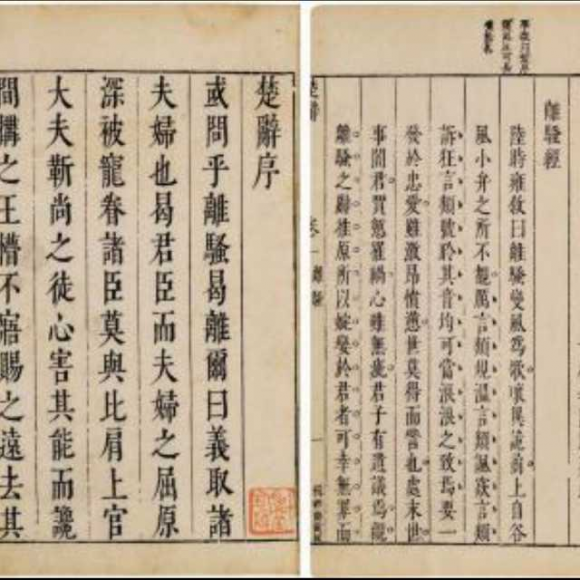 楚辭序
或問乎離騷曷離爾曰義取諸
夫婦也曷君臣而夫婦之屈原
深被寵眷諸臣莫與比肩上官
大夫靳尚之徒心害其能而讒
間搆之王懵不寤賜之遠去其
離騷經
陸時雍敘曰離騷變風焉歟瓌異詭譎上自谷
風小弁之所不能厲言類規溫言類諷欵言類
訴狂言類號聆其音均可當浪浪之致焉要一
發於忠愛雖激昂憤懣世莫得而訾也處末世
事闇君買愁罹禍心雖無疵君子有遺議焉觀
離騷之辭推原所以於君者可幸無罪而
楚辭 卷一 離騷